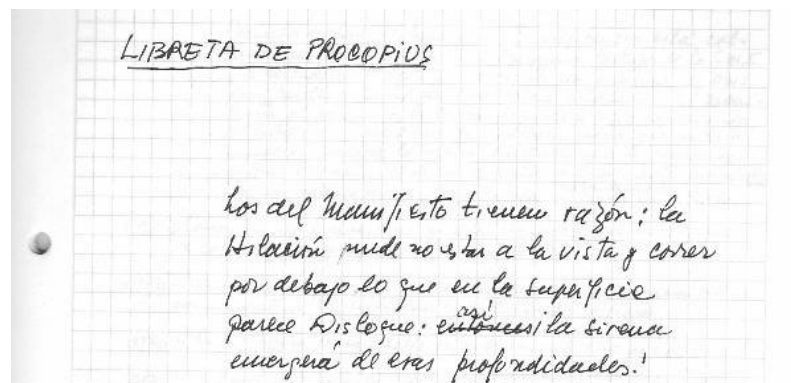 LIBRETA DE PROCOPIUS
Los del Manifiesto tienen razón: la
Hilación puede no estar a la vista y correr
por debajo lo que en la superficie
parece Disloque: entonces así la sirena
emergerá de esas profondidades.